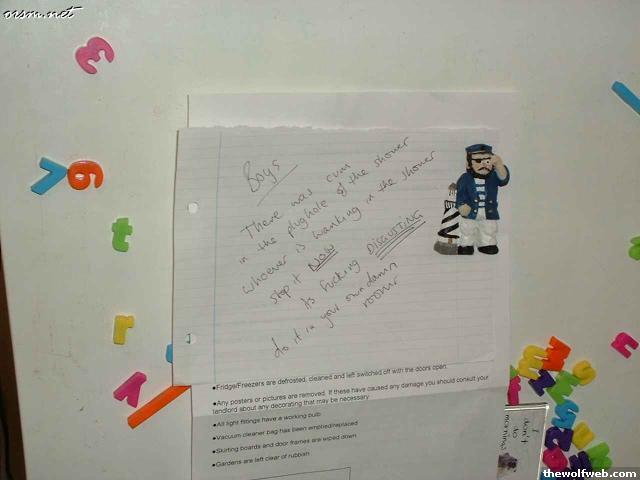 oism.net
Boys
There was cum
in the plughole of the shower
whoever is wanking in the shower
stop it NOW
its fucking DISGUSTING
do it in your own damn
rooms
●Fridge/Freezers are defrosted, cleaned and left switched off with the doors open.
●Any posters or pictures are removed. If these have caused any damage you should consult your
landlord about any decorating that may be necessary.
●All light fittings have a working bulb
●Vacuum cleaner bag has been emptied/replaced
●Skirting boards and door frames are wiped down
●Gardens are left clear of rubbish
I don't
do
mornings
thewolfweb.com